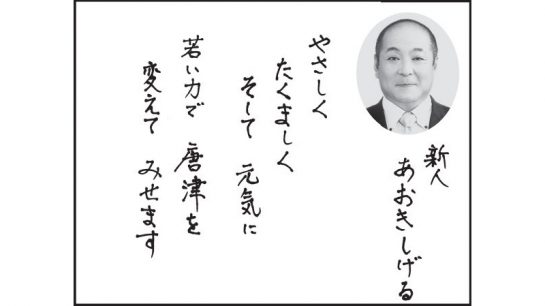 新人
あおきしげる
やさしく
たくましく
そして 元気に
若い力で 唐津を
変えて みせます